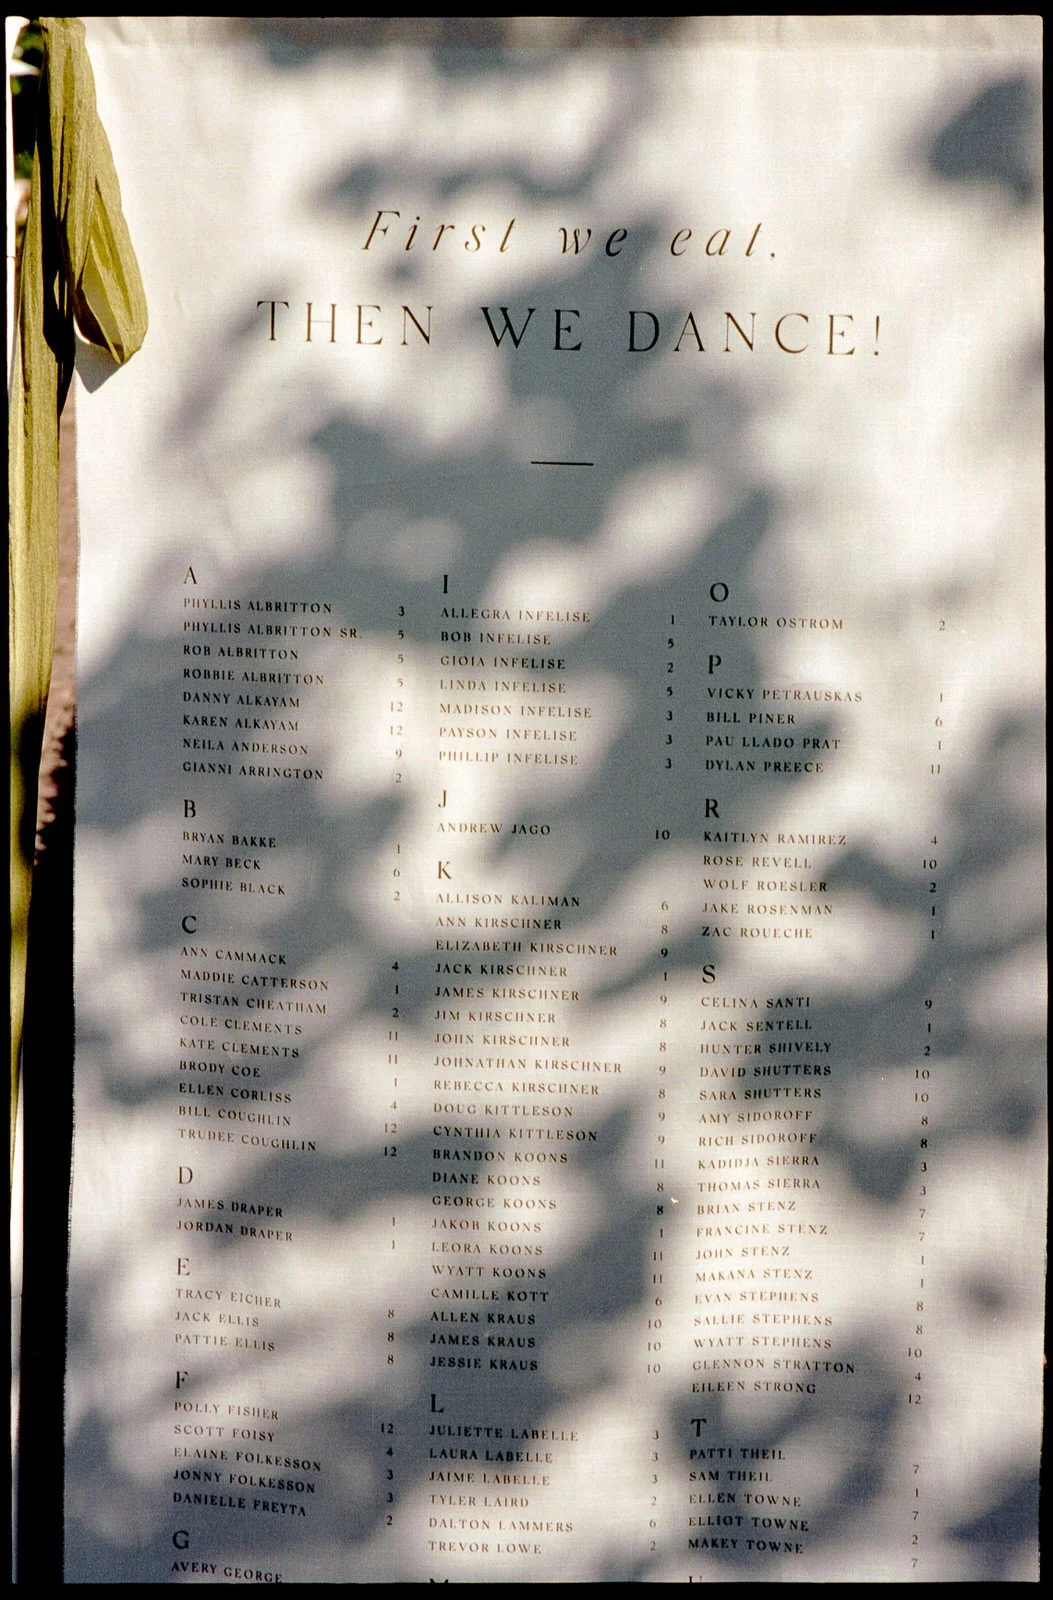 First we eat,
THEN WE DANCE!
A
PHYLLIS ALBRITTON 3
PHYLLIS ALBRITTON SR. 5
ROB ALBRITTON 5
ROBBIE ALBRITTON 5
DANNY ALKAYAM 12
KAREN ALKAYAM 12
NEILA ANDERSON 9
GIANNI ARRINGTON 2
B
BRYAN BAKKE 1
MARY BECK 6
SOPHIE BLACK 2
C
ANN CAMMACK 4
MADDIE CATTERSON 1
TRISTAN CHEATHAM 2
COLE CLEMENTS 11
KATE CLEMENTS 11
BRODY COE 1
ELLEN CORLISS 4
BILL COUGHLIN 12
TRUDEE COUGHLIN 12
D
JAMES DRAPER 1
JORDAN DRAPER 1
E
TRACY EICHER 8
JACK ELLIS 8
PATTIE ELLIS 8
F
POLLY FISHER 12
SCOTT FOISY 4
ELAINE FOLKESSON 3
JONNY FOLKESSON 3
DANIELLE FREYTA 2
G
AVERY GEORGE
I
ALLEGRA INFELISE 1
BOB INFELISE 5
GIOIA INFELISE 2
LINDA INFELISE 5
MADISON INFELISE 3
PAYSON INFELISE 3
PHILLIP INFELISE 3
J
ANDREW JAGO 10
K
ALLISON KALIMAN 6
ANN KIRSCHNER 8
ELIZABETH KIRSCHNER 9
JACK KIRSCHNER 1
JAMES KIRSCHNER 9
JIM KIRSCHNER 8
JOHN KIRSCHNER 8
JOHNATHAN KIRSCHNER 9
REBECCA KIRSCHNER 8
DOUG KITTLESON 9
CYNTHIA KITTLESON 9
BRANDON KOONS 11
DIANE KOONS 8
GEORGE KOONS 8
JAKOB KOONS 1
LEORA KOONS 11
WYATT KOONS 11
CAMILLE KOTT 6
ALLEN KRAUS 10
JAMES KRAUS 10
JESSIE KRAUS 10
L
JULIETTE LABELLE 3
LAURA LABELLE 3
JAIME LABELLE 3
TYLER LAIRD 2
DALTON LAMMERS 6
TREVOR LOWE 2
O
TAYLOR OSTROM 2
P
VICKY PETRAUSKAS 1
BILL PINER 6
PAU LLADO PRAT 1
DYLAN PREECE 11
R
KAITLYN RAMIREZ 4
ROSE REVELL 10
WOLF ROESLER 2
JAKE ROSENMAN 1
ZAC ROUECHE 1
S
CELINA SANTI 9
JACK SENTELL 1
HUNTER SHIVELY 2
DAVID SHUTTERS 10
SARA SHUTTERS 10
AMY SIDOROFF 8
RICH SIDOROFF 8
KADIDJA SIERRA 3
THOMAS SIERRA 3
BRIAN STENZ 7
FRANCINE STENZ 7
JOHN STENZ 1
MAKANA STENZ 1
EVAN STEPHENS 8
SALLIE STEPHENS 8
WYATT STEPHENS 10
GLENNON STRATTON 4
EILEEN STRONG 12
T
PATTI THEIL 7
SAM THEIL 1
ELLEN TOWNE 7
ELLIOT TOWNE 2
MAKEY TOWNE 7